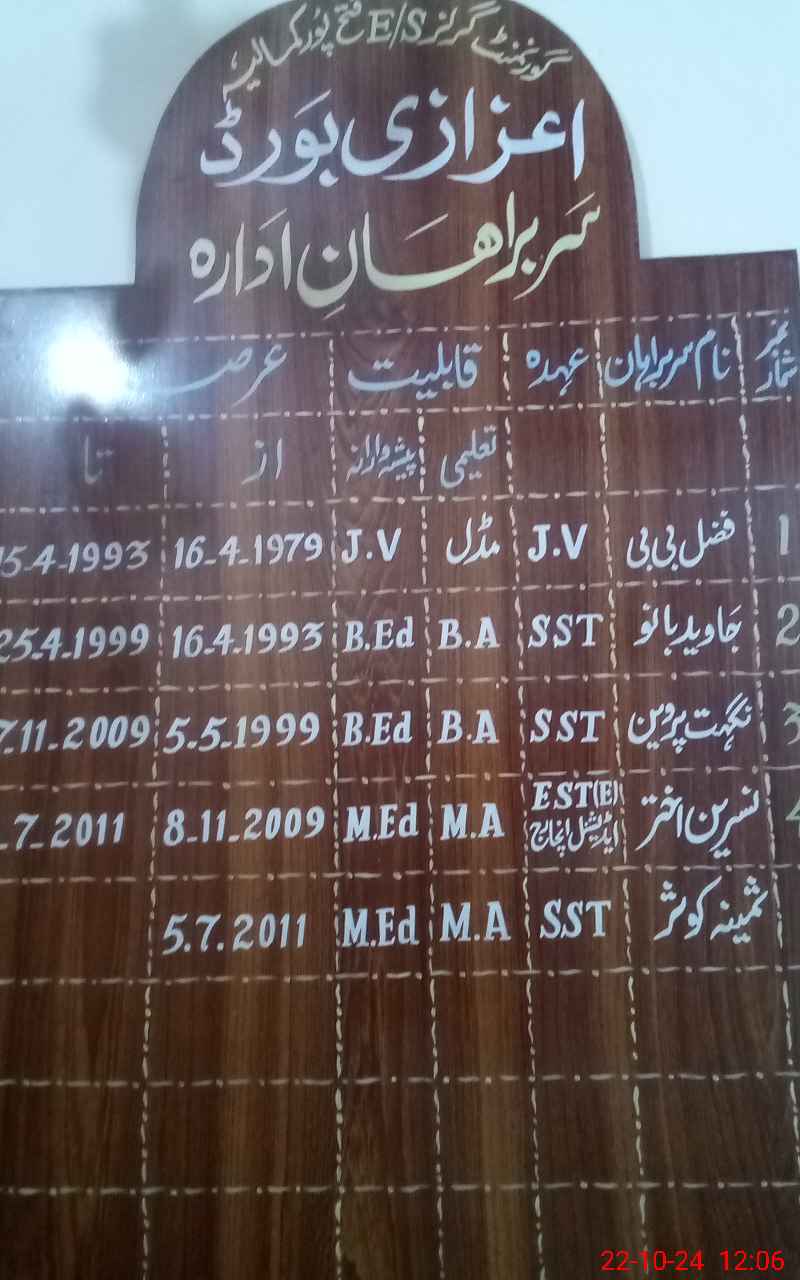 گورنمنٹ گرلز E/S فتح پور کمالیہ
اعزازی بورڈ
سربراھانِ ادارہ
نمبر شمار نام سربراہان عہدہ قابلیت عرصہ
تعلیمی پیشہ وارانہ از تا
1 فضل بی بی J.V مڈل J.V 16-4-1979 15-4-1993
2 جاوید بانو SST B.A B.Ed 16-4-1993 25-4-1999
3 نگہت پروین SST B.A B.Ed 5-5-1999 7-11-2009
4 نسرین اختر EST(E) ایڈیشنل انچارج M.A M.Ed 8-11-2009 -7-2011
ثمینہ کوثر SST M.A M.Ed 5.7.2011
22-10-24 12:06